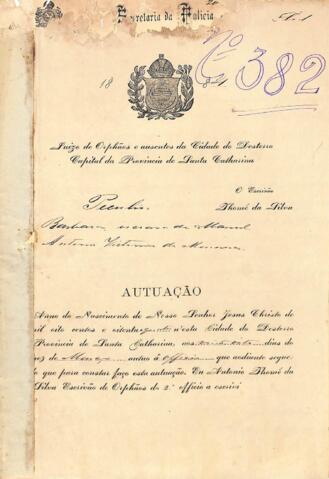 Secretaria da Policia
Fl. 1
Nº 382
18
Juizo de Orphãos e ausentes da Cidade do Desterro
Capital da Provincia de Santa Catharina
O Escrivão
Peculio
Thomé da Silva
Barbara, escrava de Manoel
Antonio Victorino de Menezes
AUTUAÇÃO
Anno do Nascimento de Nosso Senhor Jesus Christo de
mil oito centos e oitenta n'esta Cidade do Desterro
Provincia de Santa Catharina, aos dias do
mez de Março autuo o officio que adiante segue
do que para constar faço esta autuação. Eu Antonio Thomé da
Silva Escrivão de Orphãos do 2.º officio a escrevi